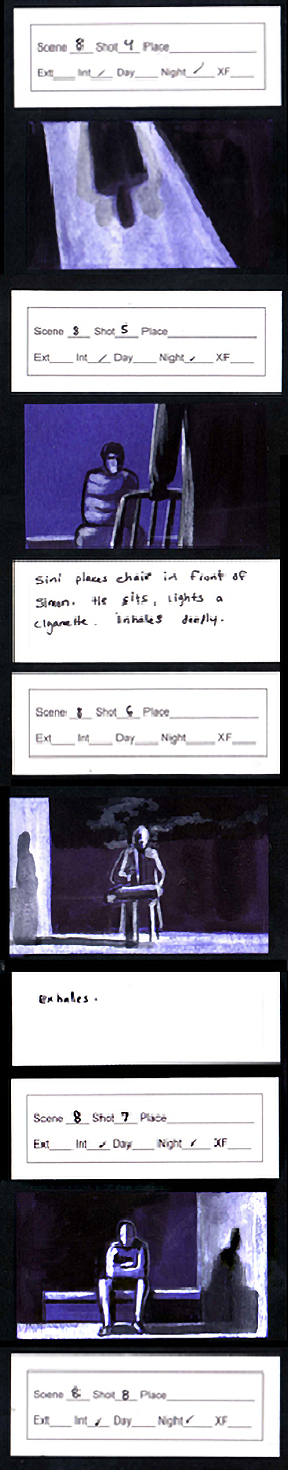 Scene 8 Shot 4 Place
Ext Int / Day Night / XF
Scene 8 Shot 5 Place
Ext Int / Day Night / XF
Sini places chair in front of
Simon. He sits, lights a
cigarette. Inhales deeply.
Scene 8 Shot 6 Place
Ext Int Day Night XF
Exhales.
Scene 8 Shot 7 Place
Ext Int / Day Night / XF
Scene 8 Shot 8 Place
Ext Int / Day Night / XF